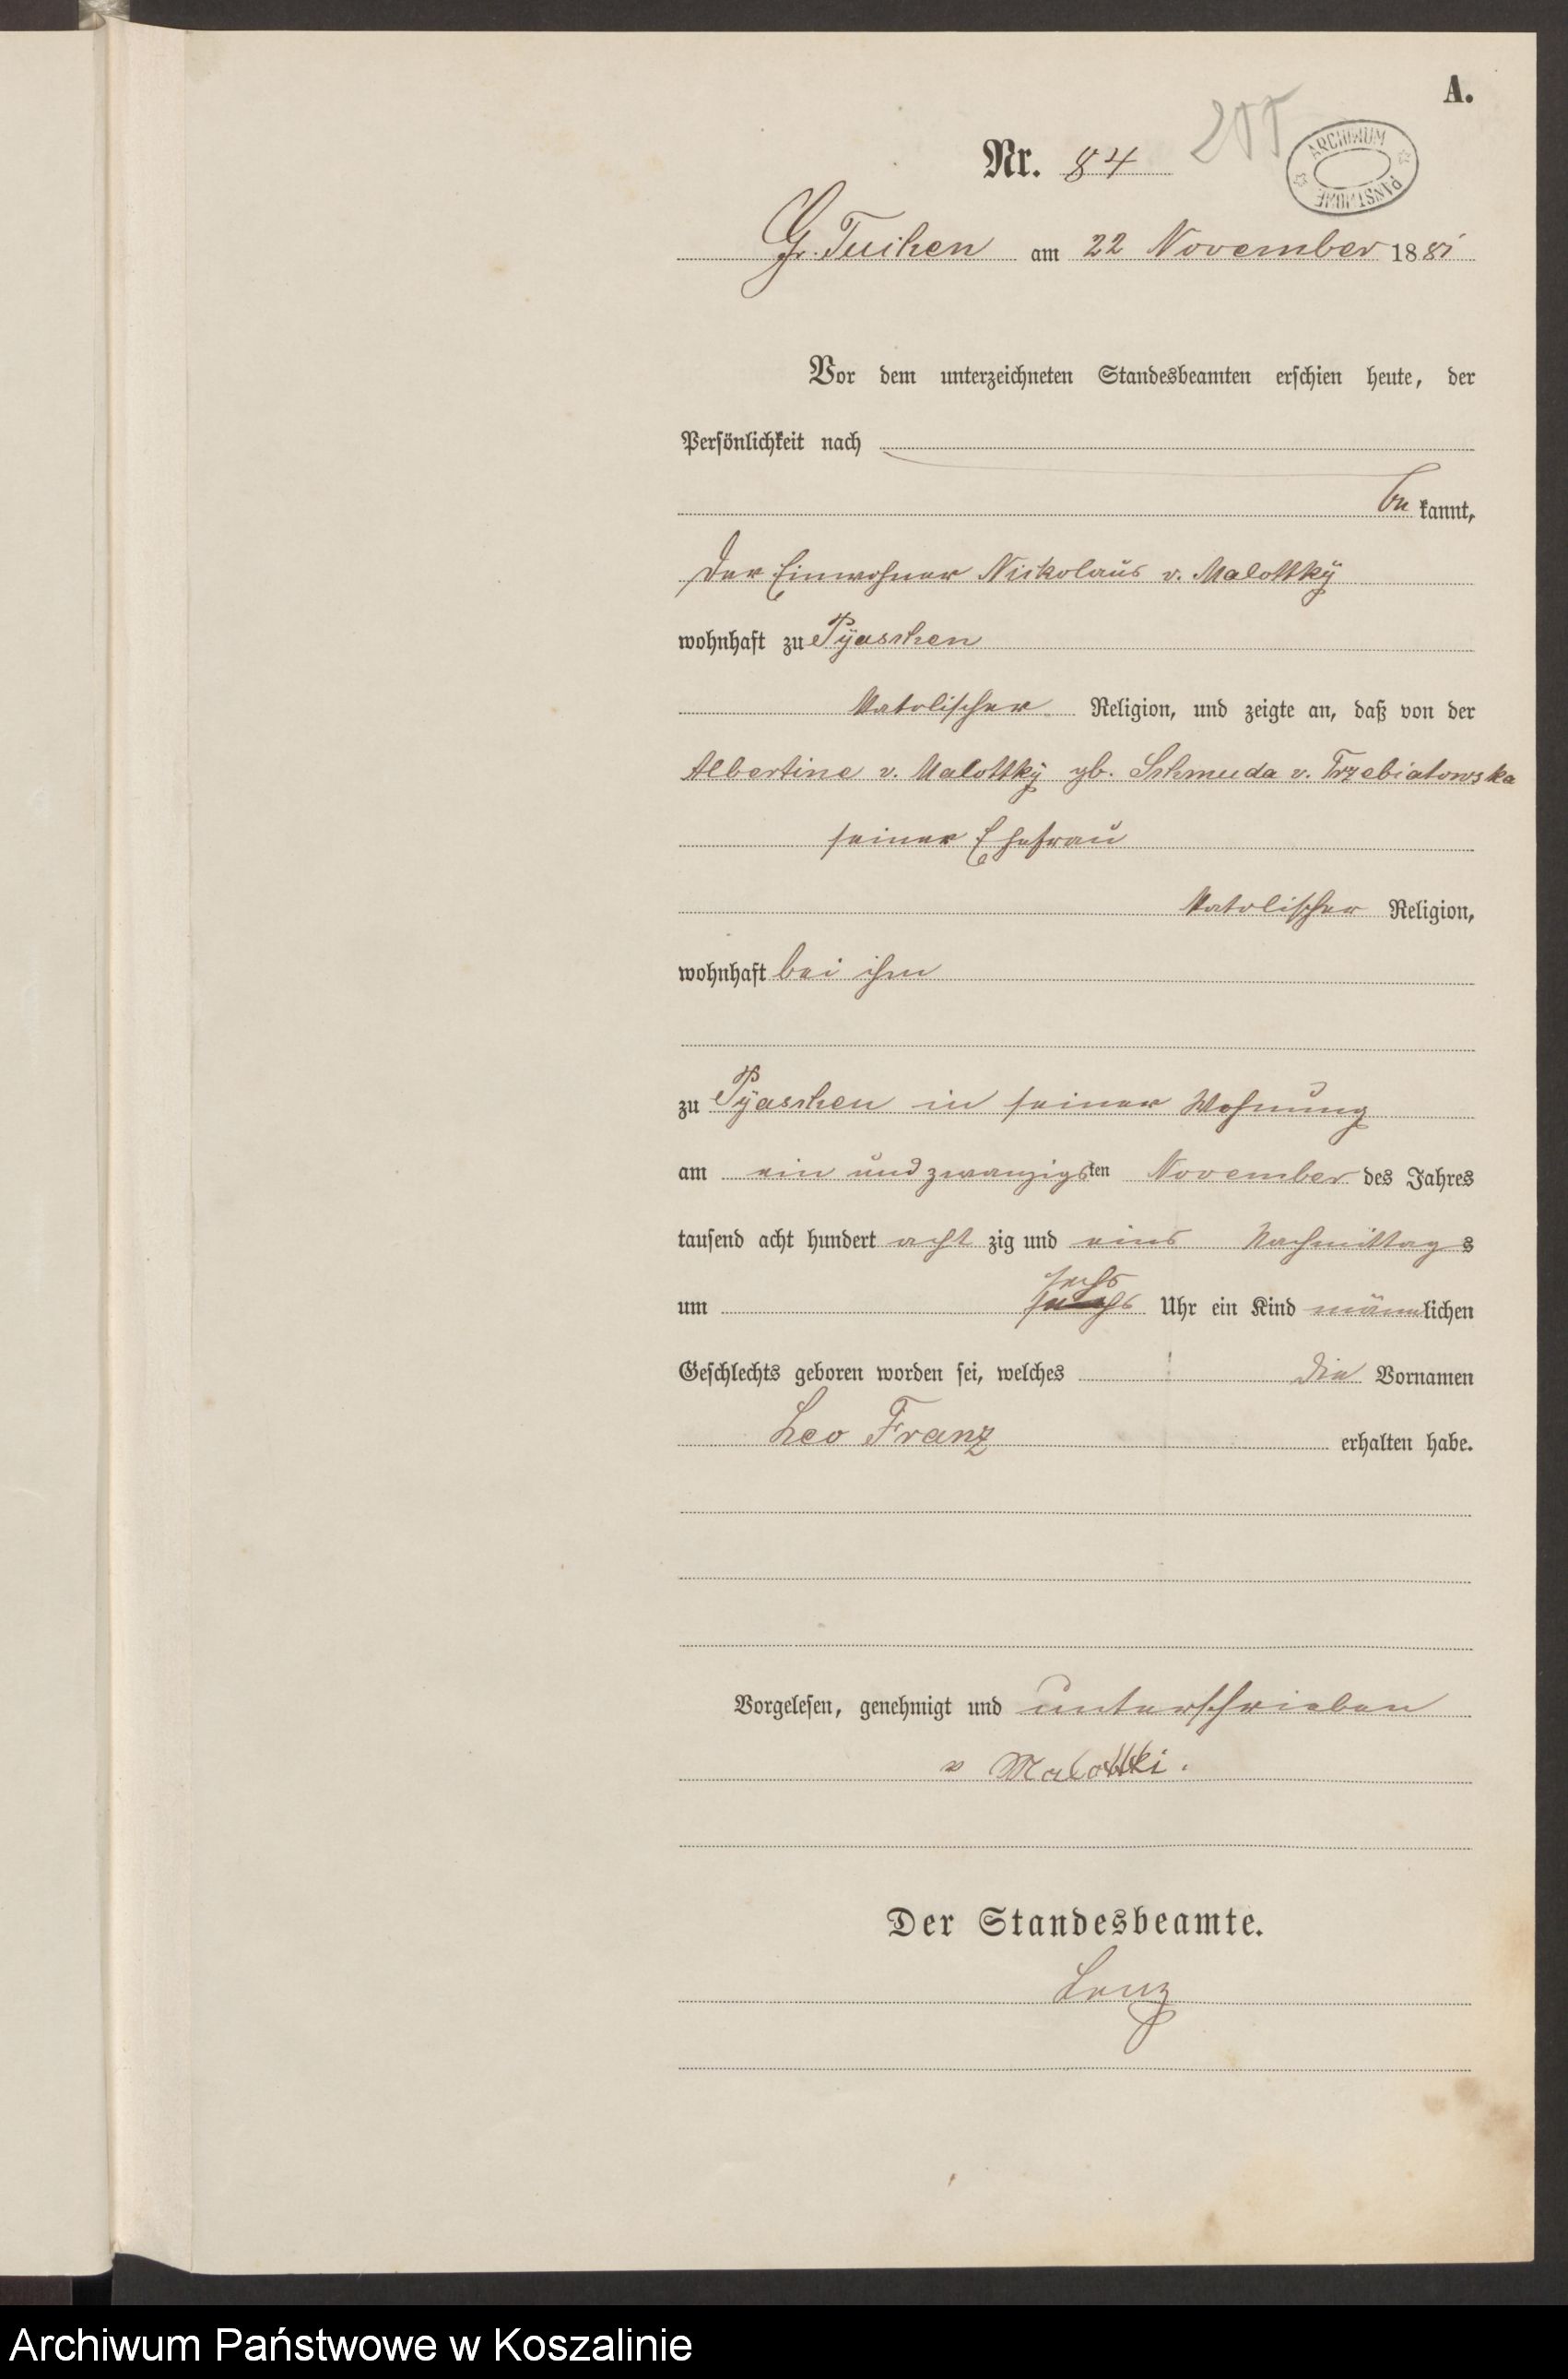 A.
Nr. 84
255
ARCHIWUM
PAŃSTWOWE
Gr. Tuchen am 22 November 1881
Vor dem unterzeichneten Standesbeamten erschien heute, der
Persönlichkeit nach
be kannt,
der Einwohner Nickolaus v. Malottky
wohnhaft zu Pyaschen
katolischer Religion, und zeigte an, daß von der
Albertine v. Malottky gb. Schmuda v. Trzebiatowska
seiner Ehefrau
katolischer Religion,
wohnhaft bei ihm
zu Pyaschen in seiner Wohnung
am ein und zwanzigsten November des Jahres
tausend acht hundert acht zig und eins Nachmittags
sechs
um Uhr ein Kind männlichen
Geschlechts geboren worden sei, welches die Vornamen
Leo Franz erhalten habe.
Vorgelesen, genehmigt und unterschrieben
v Malottki.
Der Standesbeamte.
Lenz
Archiwum Państwowe w Koszalinie